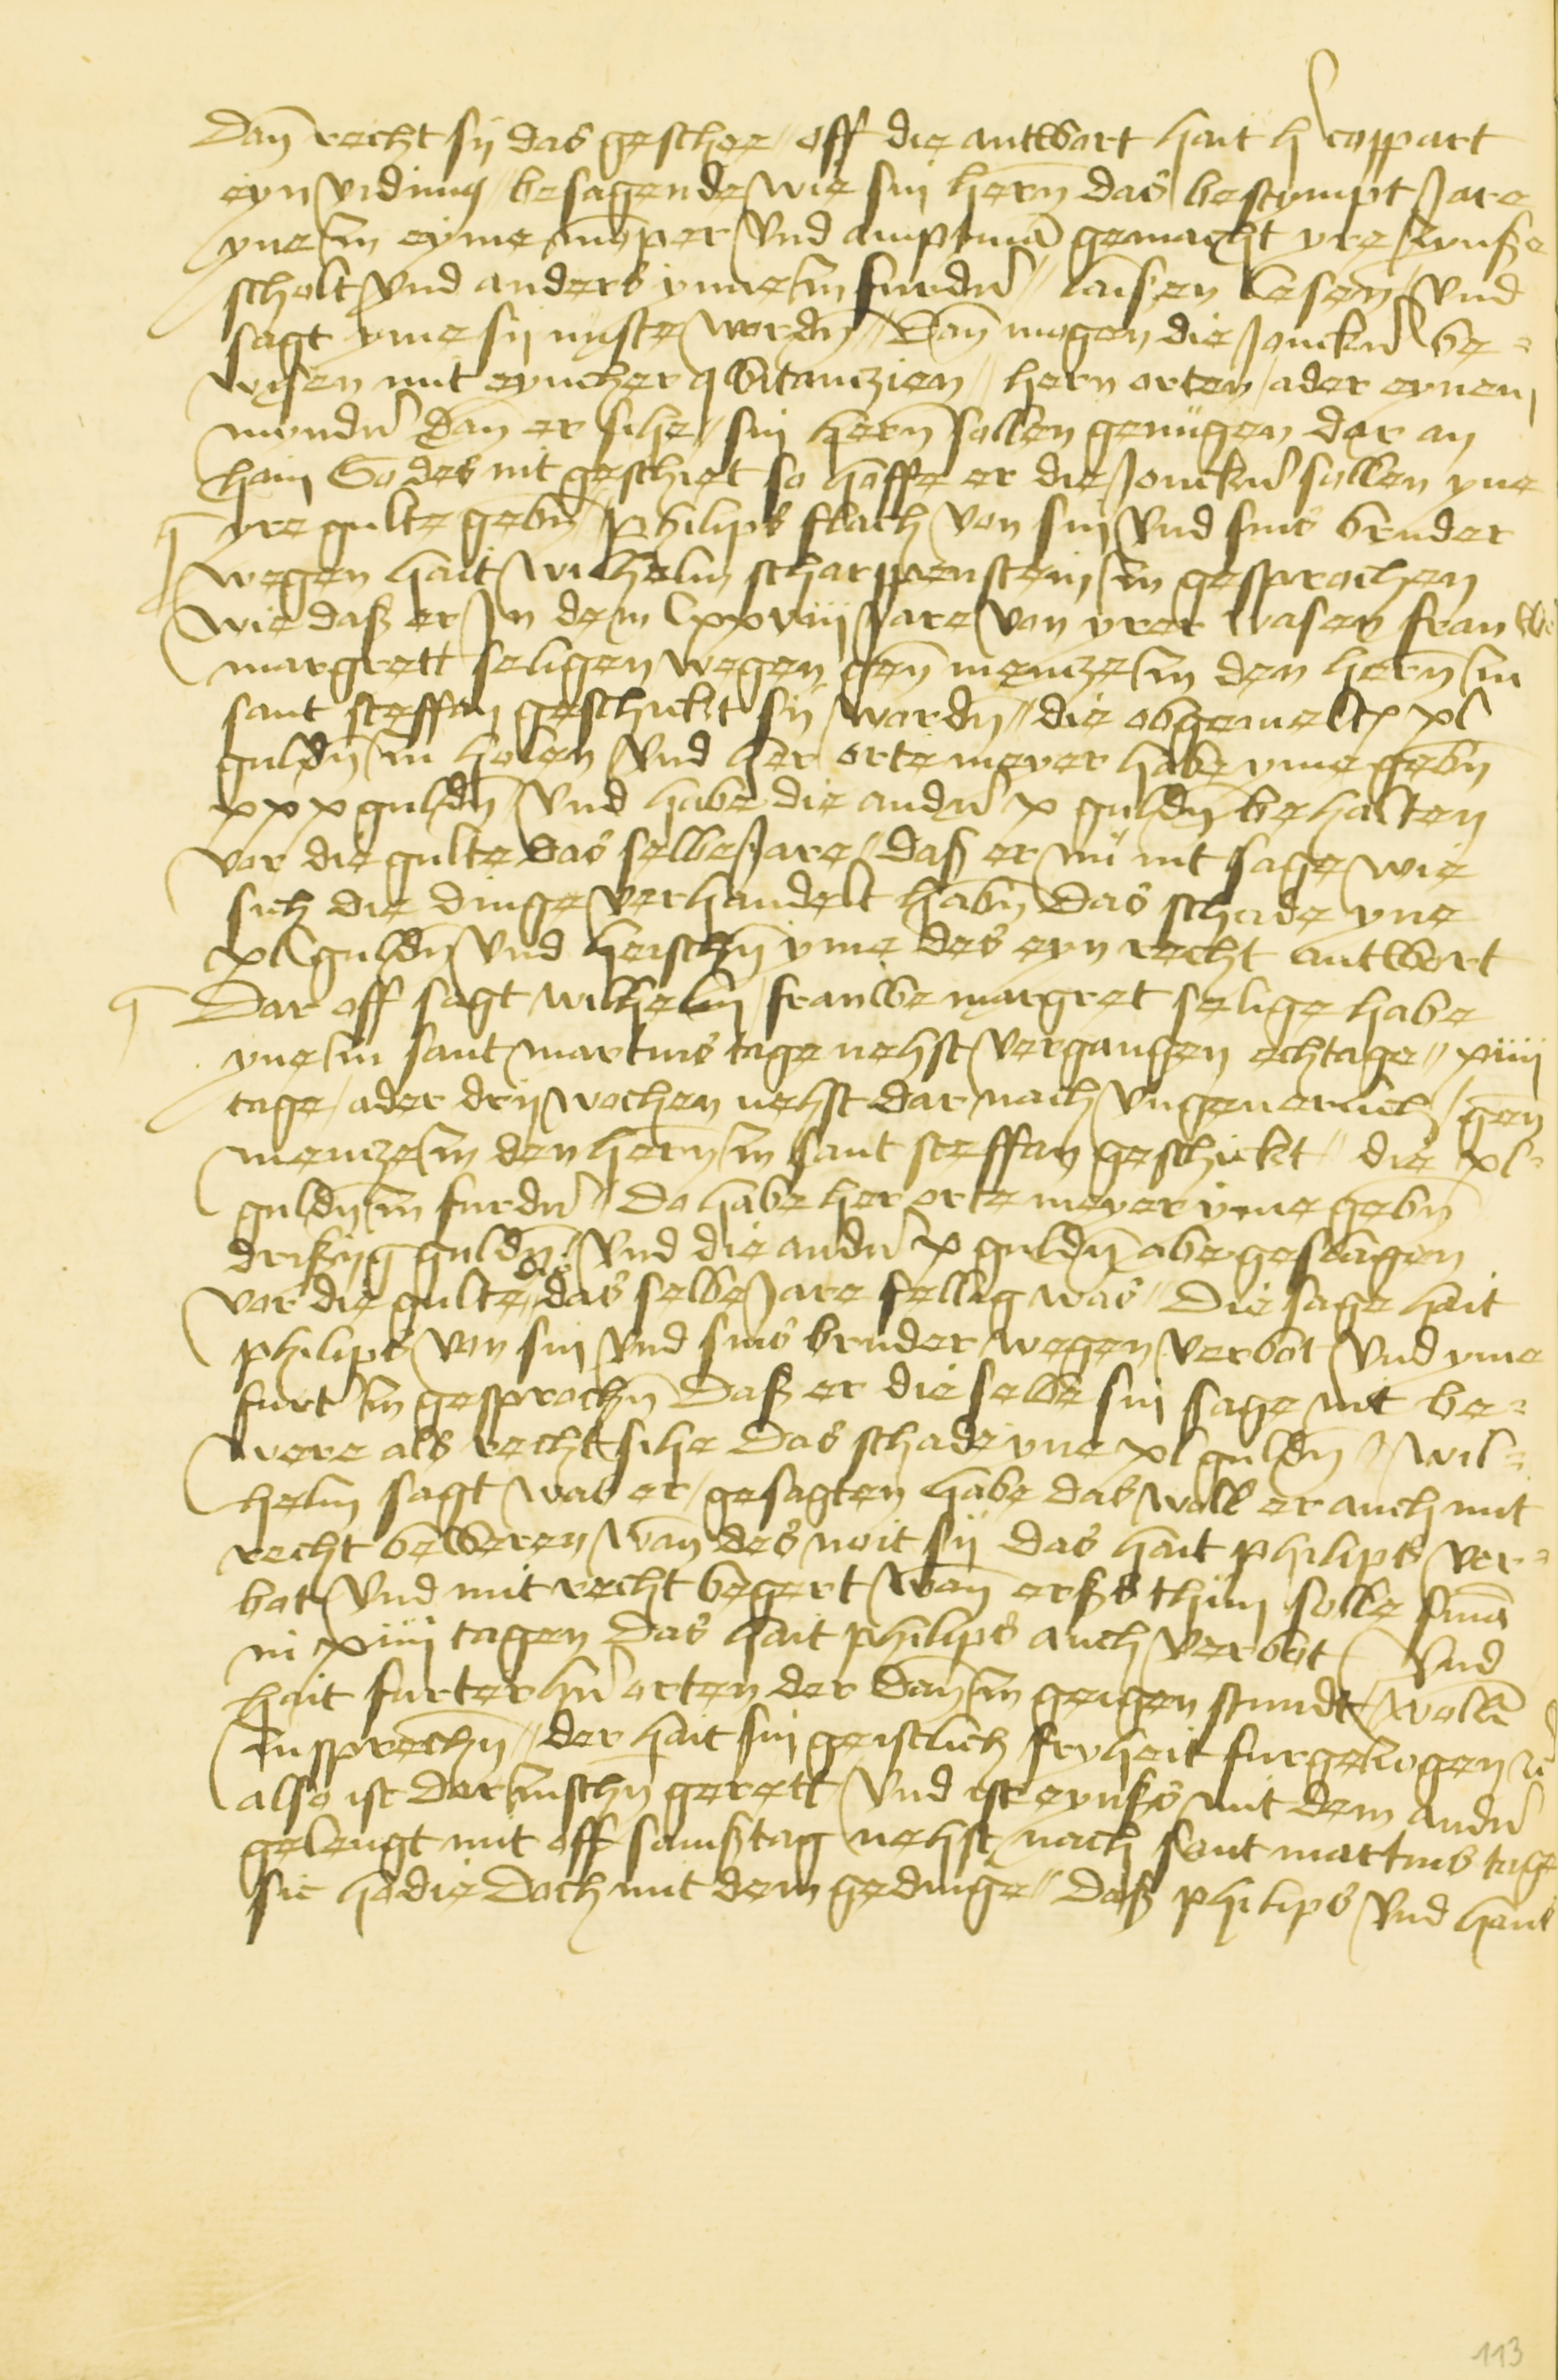 Dan̄ recht sij das geschee // off die antwort hait h coppart
eyn vidimus // besagende wie sin hern̄ das bestympt Jare
yne zu eyme momper vnd amptmā gemacht yre zynße
scholt vnd anders ynne zu furdn̄ // laißen lesen / vnd
sagt yme sij nyste wordn̄ // Dan̄ mogen die Jonckn̄ be=
wisen mit eyncher qwitanczien // hern orten / ader eynem
myndn̄ Dan̄ er sihe / sin hern̄ sollen genügen dar an
hain So des nit geschiet so hoffe er die Jonckn̄ sollen yne
yre gulte gebn̄ / philips flach von sin vnd sins bruder
wegen hait wilhelm scharppenstein zu gesprochen
wie daß er Jn dem lxxviij Jare von yrer wasen frauwe
margrett seligen wegen gein mencze zu den hern̄ zu
sant steffan geschickt sij wordn̄ // die obgemelte xl
guldn̄ zu holen vnd her orte meyer habe yme gebn̄
xxx guldn̄ vnd habe die andn̄ x guldn̄ behalten
vor die gulte das selbe Jare // daß er nü nit sage wie
sich die dinge verhandelt habn̄ das schade yne
xl guldn̄ vnd heischn̄ yme des eyn recht antwort
Dar off sagt wilhelm frauwe margret selige habe
yne zu sant martins tage nehst vergangen echtage // xiiij
tage / ader drij wochen nehst dar nach vngeuerlich / gein
mencze zu den hern̄ zu sant steffan geschickt // die xl=
guldn̄ zu furdn̄ // Do habe her orte meyer yme gebn̄
drißijg guldn̄ / vnd die andn̄ x guldn̄ abegeslagen
vor die gulte die das selbe Jare fellig was // Die sage hait
philips von sin vnd sins bruder wegen verbot vnd yme
furt zu gesprochn̄ Daß er die selbe sin sage nit be=
were als recht sihe Das schade yne xl guldn̄ // wil=
helm sagt was er gesagten habe das woll er auch mit
recht beweren wan̄ des noit sij das hait philips ver=
bot vnd mit recht begert wan̄ erßs thün solle
in xiiij tagen Das hait philips auch verbot / vnd
hait furter hn̄ orten der dan̄ zu geigen stundt / wolln̄
zu sprechn̄ // der hait sin geistlich fryheit furgezogen
also ist darzuschn̄ gerett vnd ist eynßs mit dem andn̄
gelengt mit off samßtag nehst nach sant mattins tage
sic hodie Doch mit dem gedinge // Daß philips vnd hans
113